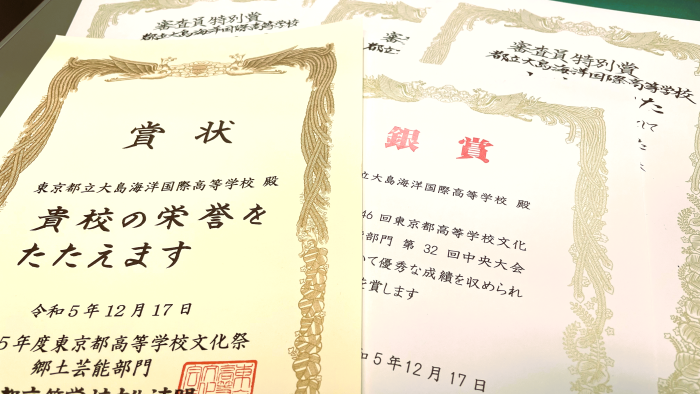 賞状
東京都立大島海洋国際高等学校 殿
貴校の栄誉を
たたえます
令和5年12月17日
5年度東京都高等学校文化祭
郷土芸能部門
銀賞
立大島海洋国際高等学校 殿
46回東京都高等学校文化
部門 第32回中央大会
いて優秀な成績を収められ
を賞します
和5年12月17日
審査員特別賞
都立大島海洋国際高等学校
審
都立
審査員特別賞
都立大島海洋国際高等学校
た